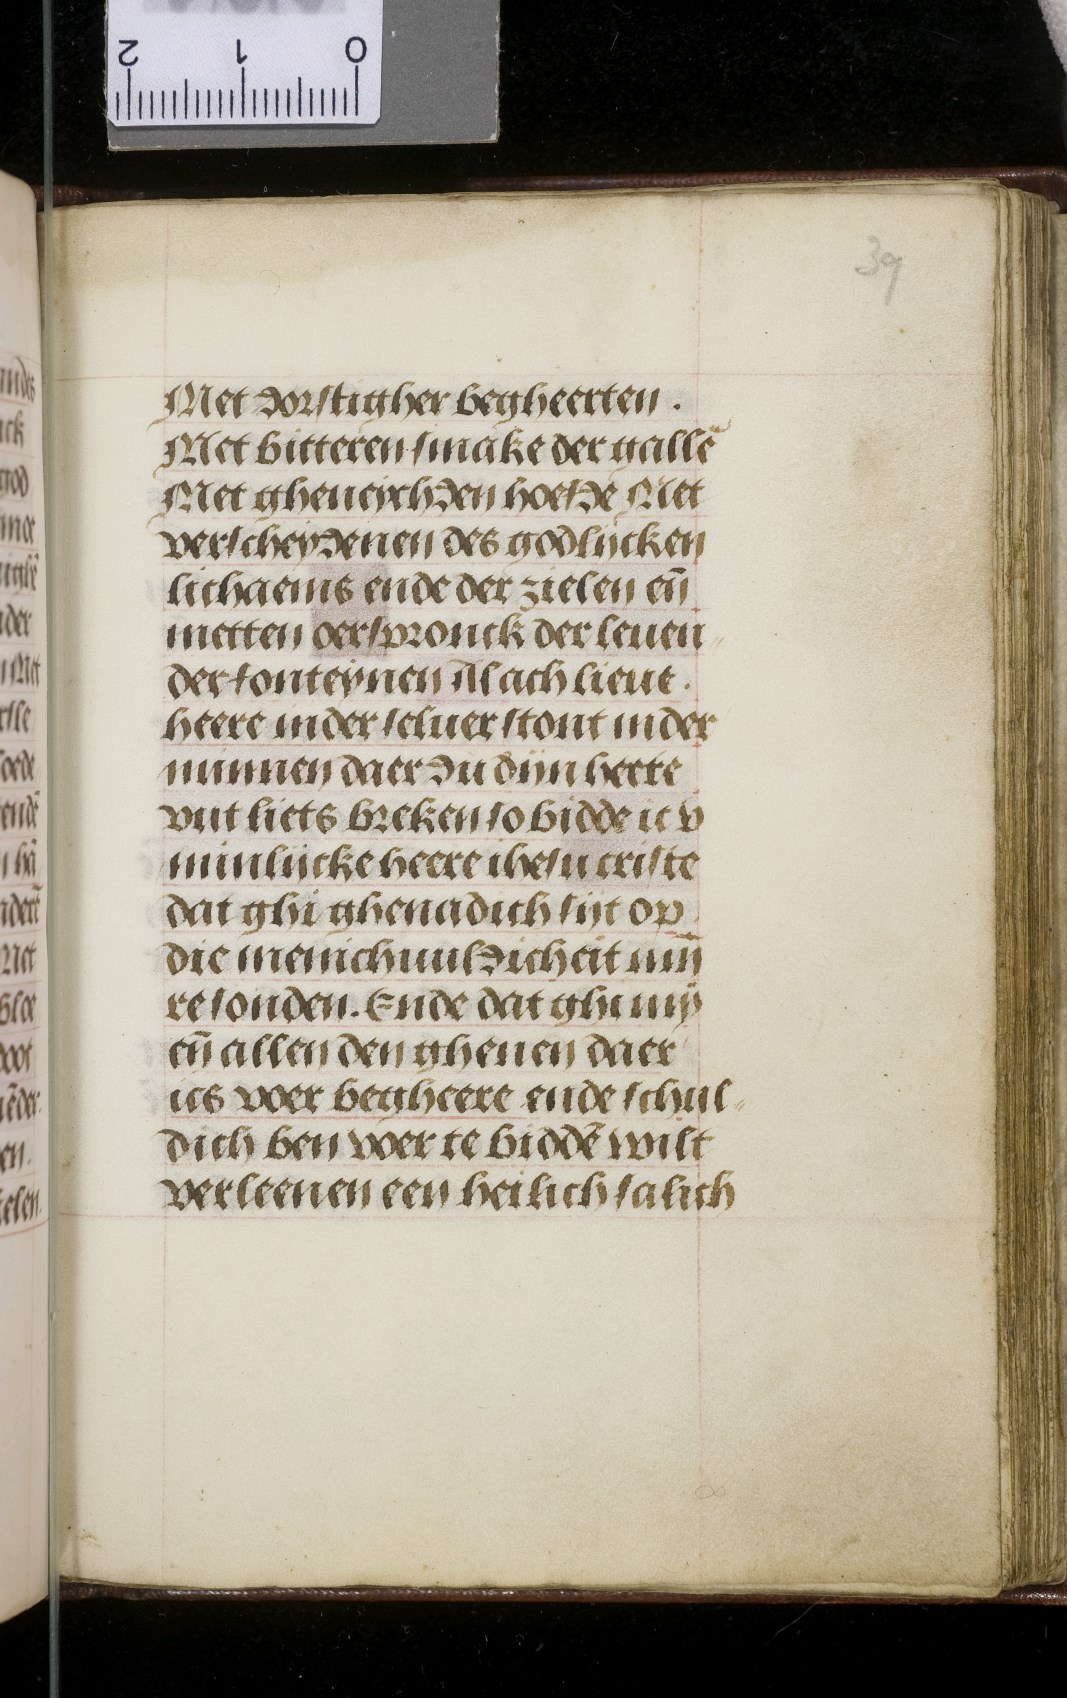 39
Met dorstigher begheerten.
Met bitteren smake der gallē
Met gheneychden hoefde Met
verscheydenen des godlijcken
lichaems ende der zielen eñ
metten oerspronck der leuen
der fonteynen Al ach lieue.
heere in der seluer stont in der
minnen daer du dijn herte
vut liets breken so bidde ic v
minlijcke heere ihesu criste
dat ghi ghenadich sijt op
die menichuuldicheit mijn̄
re sonden. Ende dat ghi my
eñ allen den ghenen daer
ics voer begheere ende schul
dich ben voer te biddē wilt
verleenen een heilich salich